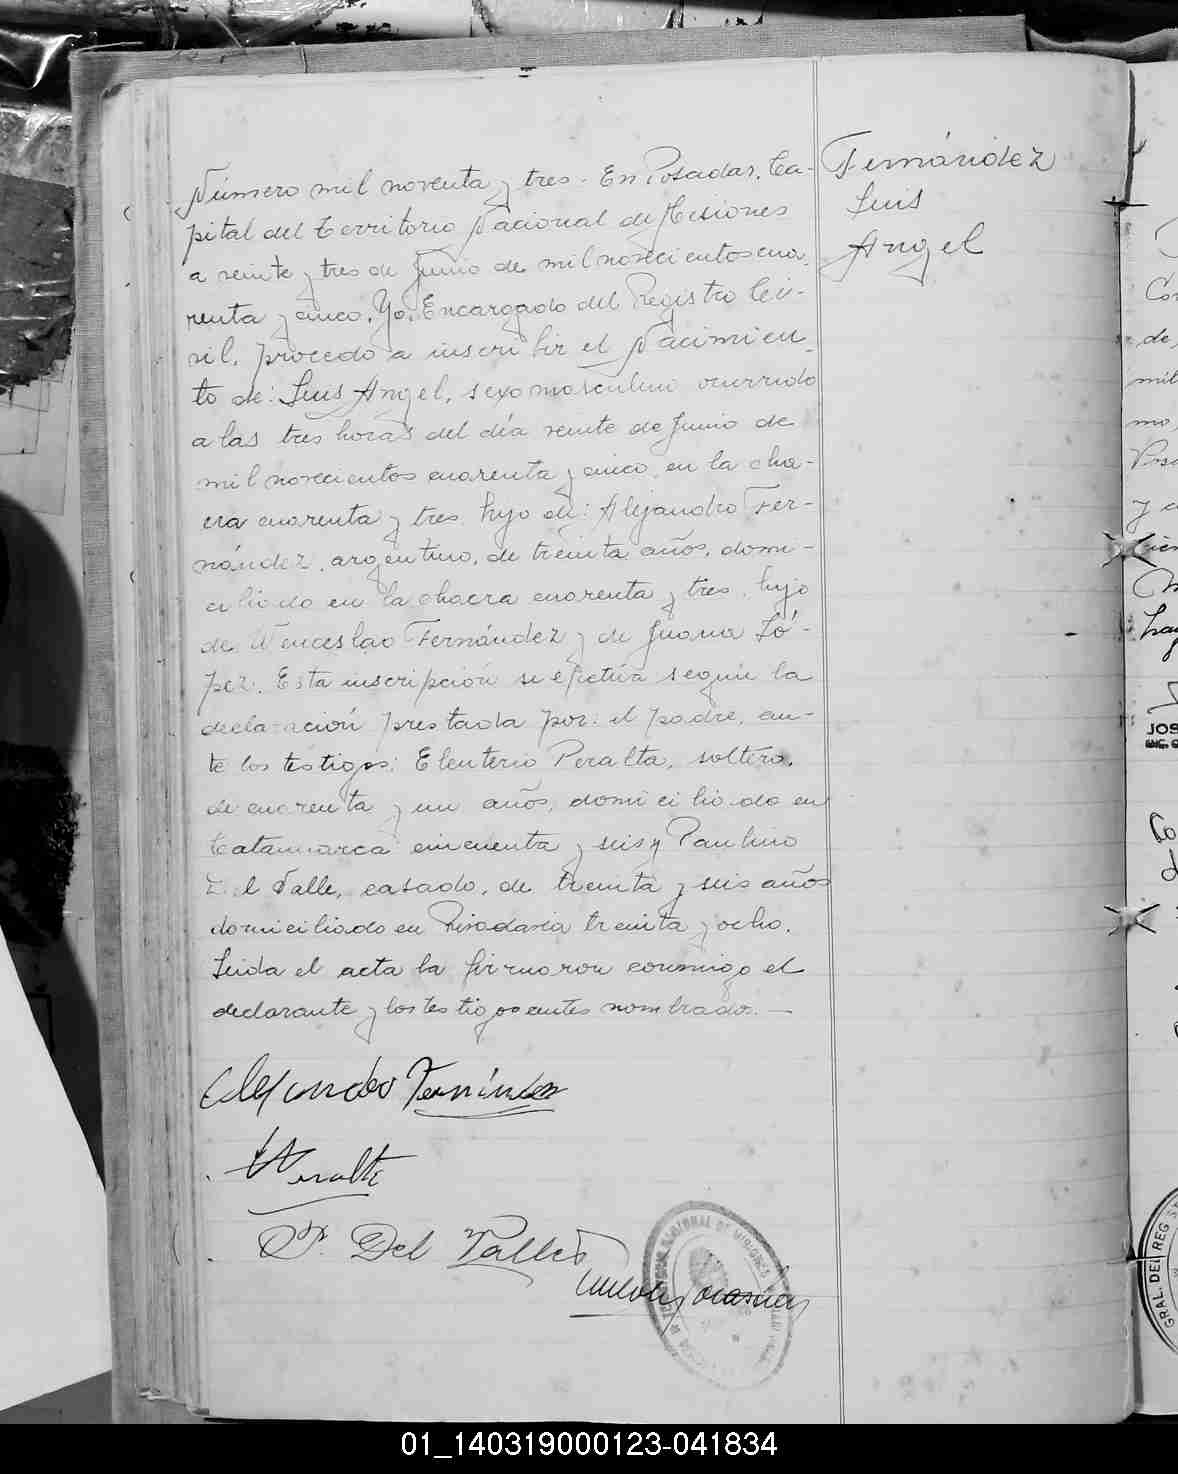 Fernández
Luis
Angel
Número mil noventa y tres. En Posadas, Ca-
pital del Territorio Nacional de Misiones
a veinte y tres de Junio de mil novecientos cua
renta y cinco. Yo, Encargado del Registro Ci-
vil, procedo a inscribir el Nacimien
to de: Luis Angel, sexo masculino ocurrido
a las tres horas del día veinte de Junio de
mil novecientos cuarenta y cinco, en la cha-
cra cuarenta y tres, hijo de: Alejandro Fer-
nández, argentino, de treinta años, domi-
ciliado en la chacra cuarenta y tres, hijo
de Wenceslao Fernández y de Juana Ló-
pez. Esta inscripción se efectúa según la
declaración prestada por: el padre, an-
te los testigos: Eleuterio Peralta, soltero,
de cuarenta y un años, domiciliado en
Catamarca cincuenta y seis y Paulino
Del Valle, casado, de treinta y seis años
domiciliado en Rivadavia treinta y ocho.
Leida el acta la firmaron conmigo el
declarante y los testigos antes nombrados. —
Alejandro Fernández
Peralta
P. Del Valle
NACIONAL DE MISIONES
Cor
de
mil
mo,
Posa
y c
JOS
GRAL. DEL REG
01_140319000123-041834